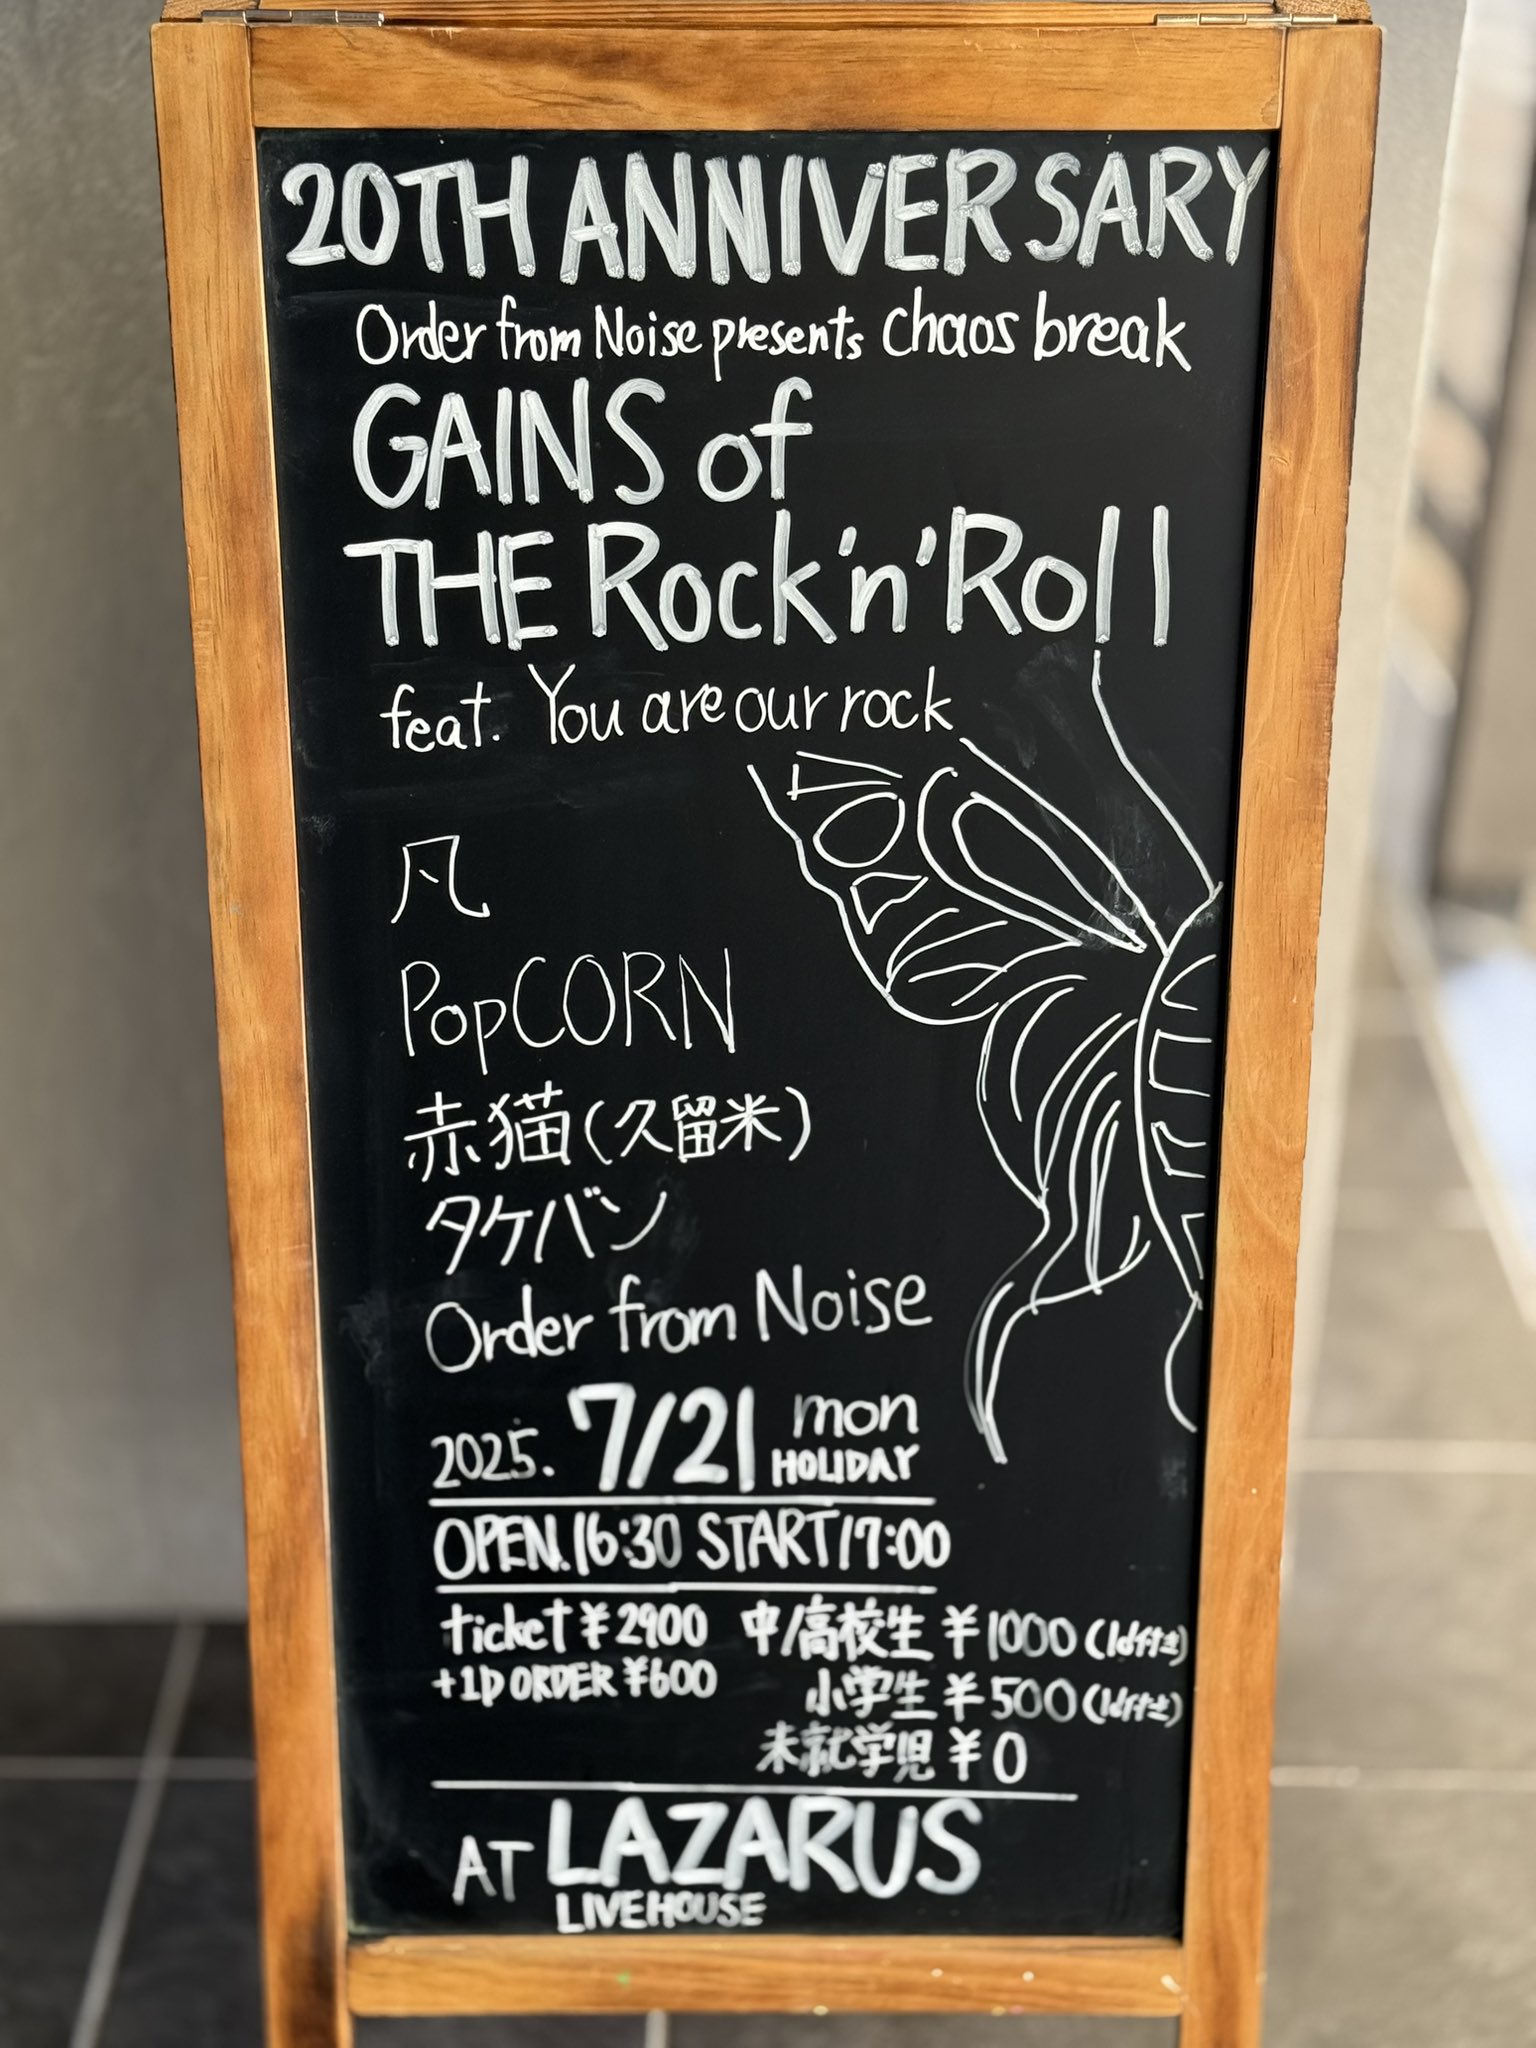 20TH ANNIVERSARY
Order from Noise presents chaos break
GAINS of
THE Rock'n'Roll
feat. You are our rock
凡
PopCORN
赤猫(久留米)
タケバン
Order from Noise
2025. 7/21 mon
HOLIDAY
OPEN.16:30 START17:00
ticket ¥2900 中/高校生 ¥1000(1d付き)
+1D ORDER ¥600 小学生 ¥500(1d付き)
未就学児 ¥0
AT LAZARUS
LIVEHOUSE